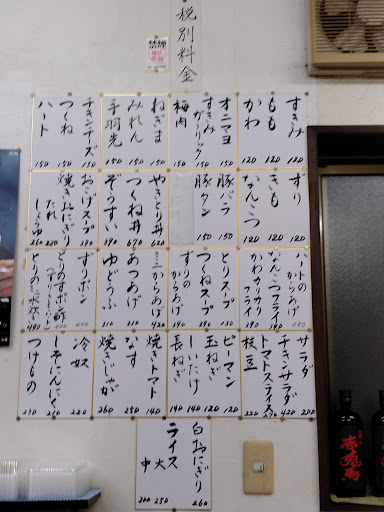 税別料金
禁煙
すきみ 120
もも 120
かわ 120
オニマヨ 150
すきみガーリック 150
梅肉 150
ねぎま 150
みれん 150
手羽先 150
チキンチーズ 150
つくね 150
ハート 150
ずり 120
きも 120
なんこつ 120
豚バラ 150
豚タン 150
やきとり丼 620
つくね丼 670
ぞうすい 390
おこげスープ 390
焼きおにぎり
たれ 220
しょうゆ 260
ハートのからあげ
なんこつフライ
かわカリカリフライ
とりスープ 150
つくねスープ 390
ずりのからあげ
ミニからあげ 420
あつあげ 310
ゆどうふ 310
ずりポン
とりのミニ水炊き 490
サラダ 200
チキンサラダ 420
トマトスライス 270
枝豆 220
ピーマン 120
玉ねぎ 120
しいたけ 140
長ねぎ 140
焼きトマト 140
なす 250
焼きじゃが 210
冷奴 220
しそにんにく 210
つけもの 270
白おにぎり 260
ライス
大 250
中 200
赤兎馬